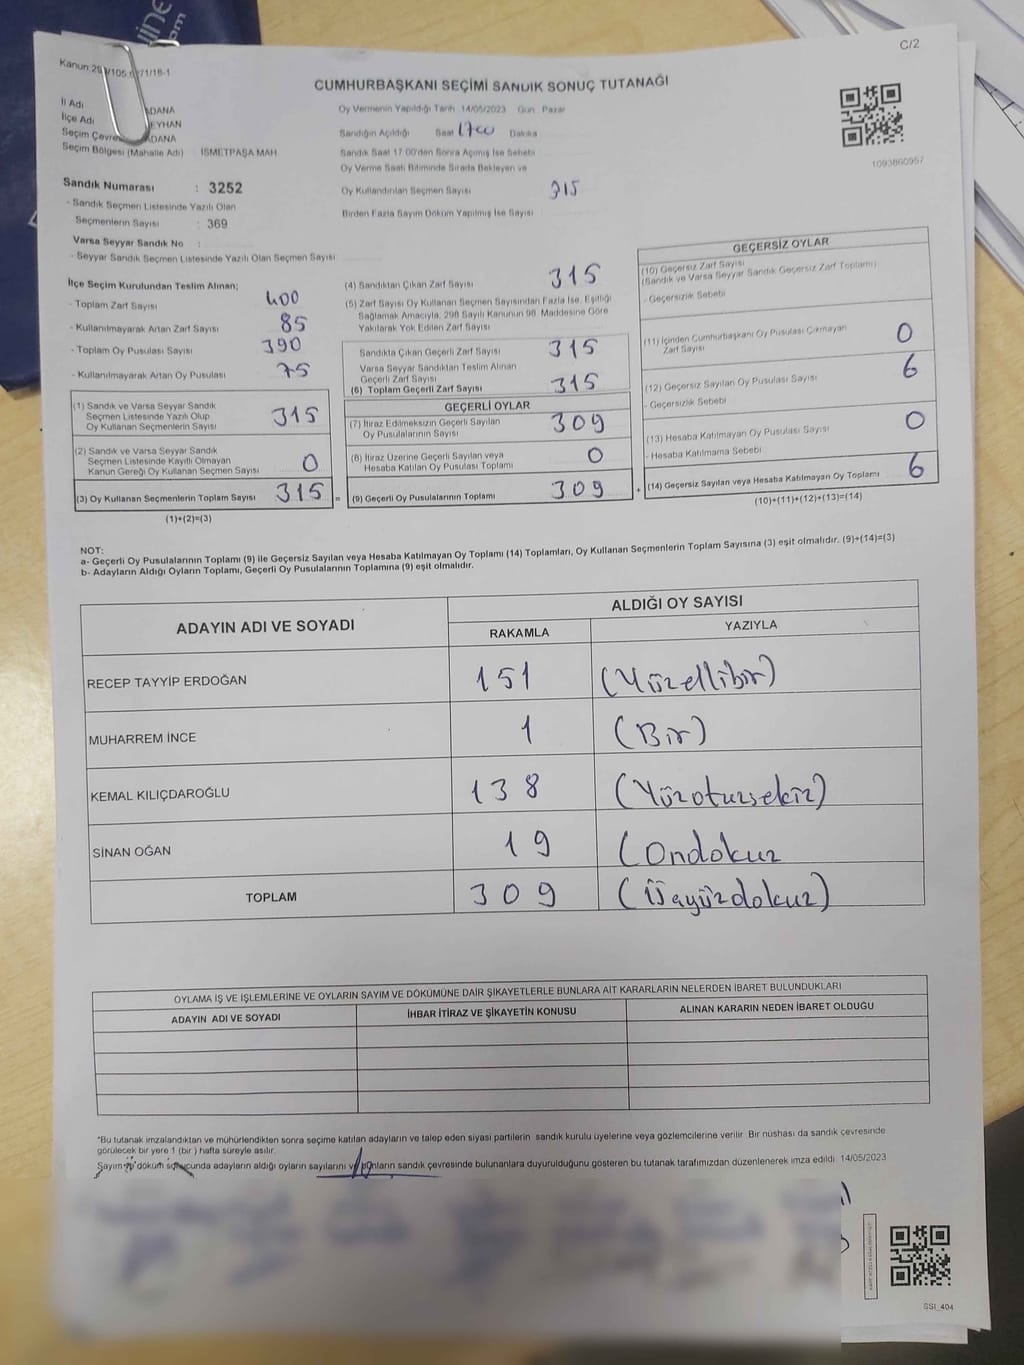 C/2
CUMHURBAŞKANI SEÇİMİ SANDIK SONUÇ TUTANAĞI
İl Adı ADANA
İlçe Adı EYHAN
Seçim Çevre ADANA
Seçim Bölgesi (Mahalle Adı) İSMETPAŞA MAH
Oy Vermenin Yapıldığı Tarih 14/05/2023 Gün Pazar
Sandığın Açıldığı Saat 1700 Dakika
Sandık Saat 17:00'den Sonra Açılmış İse Sebebi
Oy Verme Saati Bitiminde Sırada Bekleyen ve
Oy Kullandırılan Seçmen Sayısı 315
Birden Fazla Sayım Döküm Yapılmış İse Sayısı
1093860957
Sandık Numarası : 3252
- Sandık Seçmen Listesinde Yazılı Olan
Seçmenlerin Sayısı : 369
Varsa Seyyar Sandık No :
- Seyyar Sandık Seçmen Listesinde Yazılı Olan Seçmen Sayısı
İlçe Seçim Kurulundan Teslim Alınan;
- Toplam Zarf Sayısı 400
- Kullanılmayarak Artan Zarf Sayısı 85
- Toplam Oy Pusulası Sayısı 390
- Kullanılmayarak Artan Oy Pusulası 75
(1) Sandık ve Varsa Seyyar Sandık
Seçmen Listesinde Yazılı Olup
Oy Kullanan Seçmenlerin Sayısı 315
(2) Sandık ve Varsa Seyyar Sandık
Seçmen Listesinde Kayıtlı Olmayan
Kanun Gereği Oy Kullanan Seçmen Sayısı 0
(3) Oy Kullanan Seçmenlerin Toplam Sayısı 315 =
(1)+(2)=(3)
(4) Sandıktan Çıkan Zarf Sayısı 315
(5) Zarf Sayısı Oy Kullanan Seçmen Sayısından Fazla İse, Eşitliği
Sağlamak Amacıyla, 298 Sayılı Kanunun 98. Maddesine Göre
Yakılarak Yok Edilen Zarf Sayısı
Sandıkta Çıkan Geçerli Zarf Sayısı 315
Varsa Seyyar Sandıktan Teslim Alınan
Geçerli Zarf Sayısı
(6) Toplam Geçerli Zarf Sayısı 315
GEÇERLİ OYLAR
(7) İtiraz Edilmeksizin Geçerli Sayılan
Oy Pusulalarının Sayısı 309
(8) İtiraz Üzerine Geçerli Sayılan veya
Hesaba Katılan Oy Pusulası Toplamı 0
(9) Geçerli Oy Pusulalarının Toplamı 309 +
GEÇERSİZ OYLAR
(10) Geçersiz Zarf Sayısı
(Sandık ve Varsa Seyyar Sandık Geçersiz Zarf Toplamı)
- Geçersizlik Sebebi
(11) İçinden Cumhurbaşkanı Oy Pusulası Çıkmayan
Zarf Sayısı 0
(12) Geçersiz Sayılan Oy Pusulası Sayısı 6
- Geçersizlik Sebebi
(13) Hesaba Katılmayan Oy Pusulası Sayısı 0
- Hesaba Katılmama Sebebi
(14) Geçersiz Sayılan veya Hesaba Katılmayan Oy Toplamı 6
(10)+(11)+(12)+(13)=(14)
NOT:
a- Geçerli Oy Pusulalarının Toplamı (9) ile Geçersiz Sayılan veya Hesaba Katılmayan Oy Toplamı (14) Toplamları, Oy Kullanan Seçmenlerin Toplam Sayısına (3) eşit olmalıdır. (9)+(14)=(3)
b- Adayların Aldığı Oyların Toplamı, Geçerli Oy Pusulalarının Toplamına (9) eşit olmalıdır.
ADAYIN ADI VE SOYADI ALDIĞI OY SAYISI
RAKAMLA YAZIYLA
RECEP TAYYİP ERDOĞAN 151 (Yüzellibir)
MUHARREM İNCE 1 (Bir)
KEMAL KILIÇDAROĞLU 138 (Yüzotuzsekiz)
SİNAN OĞAN 19 (Ondokuz
TOPLAM 309 (Üçyüzdokuz)
OYLAMA İŞ VE İŞLEMLERİNE VE OYLARIN SAYIM VE DÖKÜMÜNE DAİR ŞİKAYETLERLE BUNLARA AİT KARARLARIN NELERDEN İBARET BULUNDUKLARI
ADAYIN ADI VE SOYADI İHBAR İTİRAZ VE ŞİKAYETİN KONUSU ALINAN KARARIN NEDEN İBARET OLDUĞU
*Bu tutanak imzalandıktan ve mühürlendikten sonra seçime katılan adayların ve talep eden siyasi partilerin sandık kurulu üyelerine veya gözlemcilerine verilir. Bir nüshası da sandık çevresinde
görülecek bir yere 1 (bir) hafta süreyle asılır.
Sayım ve döküm sonucunda adayların aldığı oyların sayılarını ve bunların sandık çevresinde bulunanlara duyurulduğunu gösteren bu tutanak tarafımızdan düzenlenerek imza edildi. 14/05/2023
SSI_404